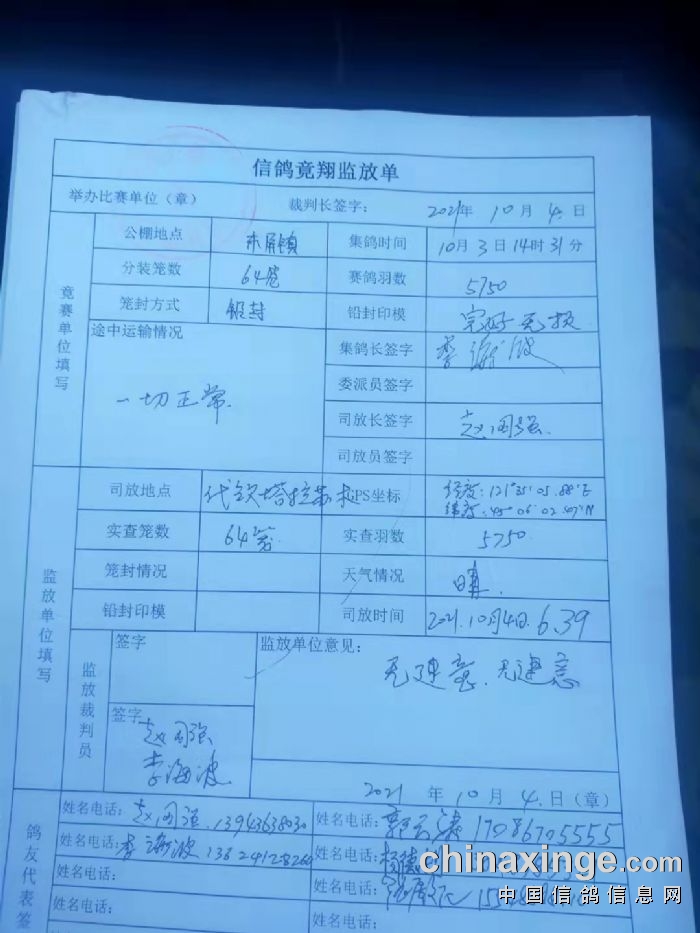 信鸽竟翔监放单
举办比赛单位（章） 裁判长签字： 2021年 10 月 4 日
竟赛单位填写
公棚地点 集鸽时间 10月3日14时31分
分装笼数 64笼 赛鸽羽数 5750
笼封方式 铅封 铅封印模 完好无损
途中运输情况 一切正常
集鸽长签字 李海波
委派员签字
司放长签字
司放员签字
监放单位填写
司放地点 代钦塔拉苏木 GPS坐标 经度：121°35′05.88″E
纬度：45°06′02.47″N
实查笼数 64笼 实查羽数 5750
笼封情况 天气情况 晴
铅封印模 司放时间 2021.10月4日.6.39
监放裁判员
签字
监放单位意见：
签字
李海波
2021 年 10 月 4 日（章）
鸽友代表签
姓名电话： 13943638030 姓名电话： 17086705555
姓名电话：李海波 姓名电话：
姓名电话： 姓名电话：
姓名电话： 姓名电话：
chinaxinge.com
中国信鸽信息网